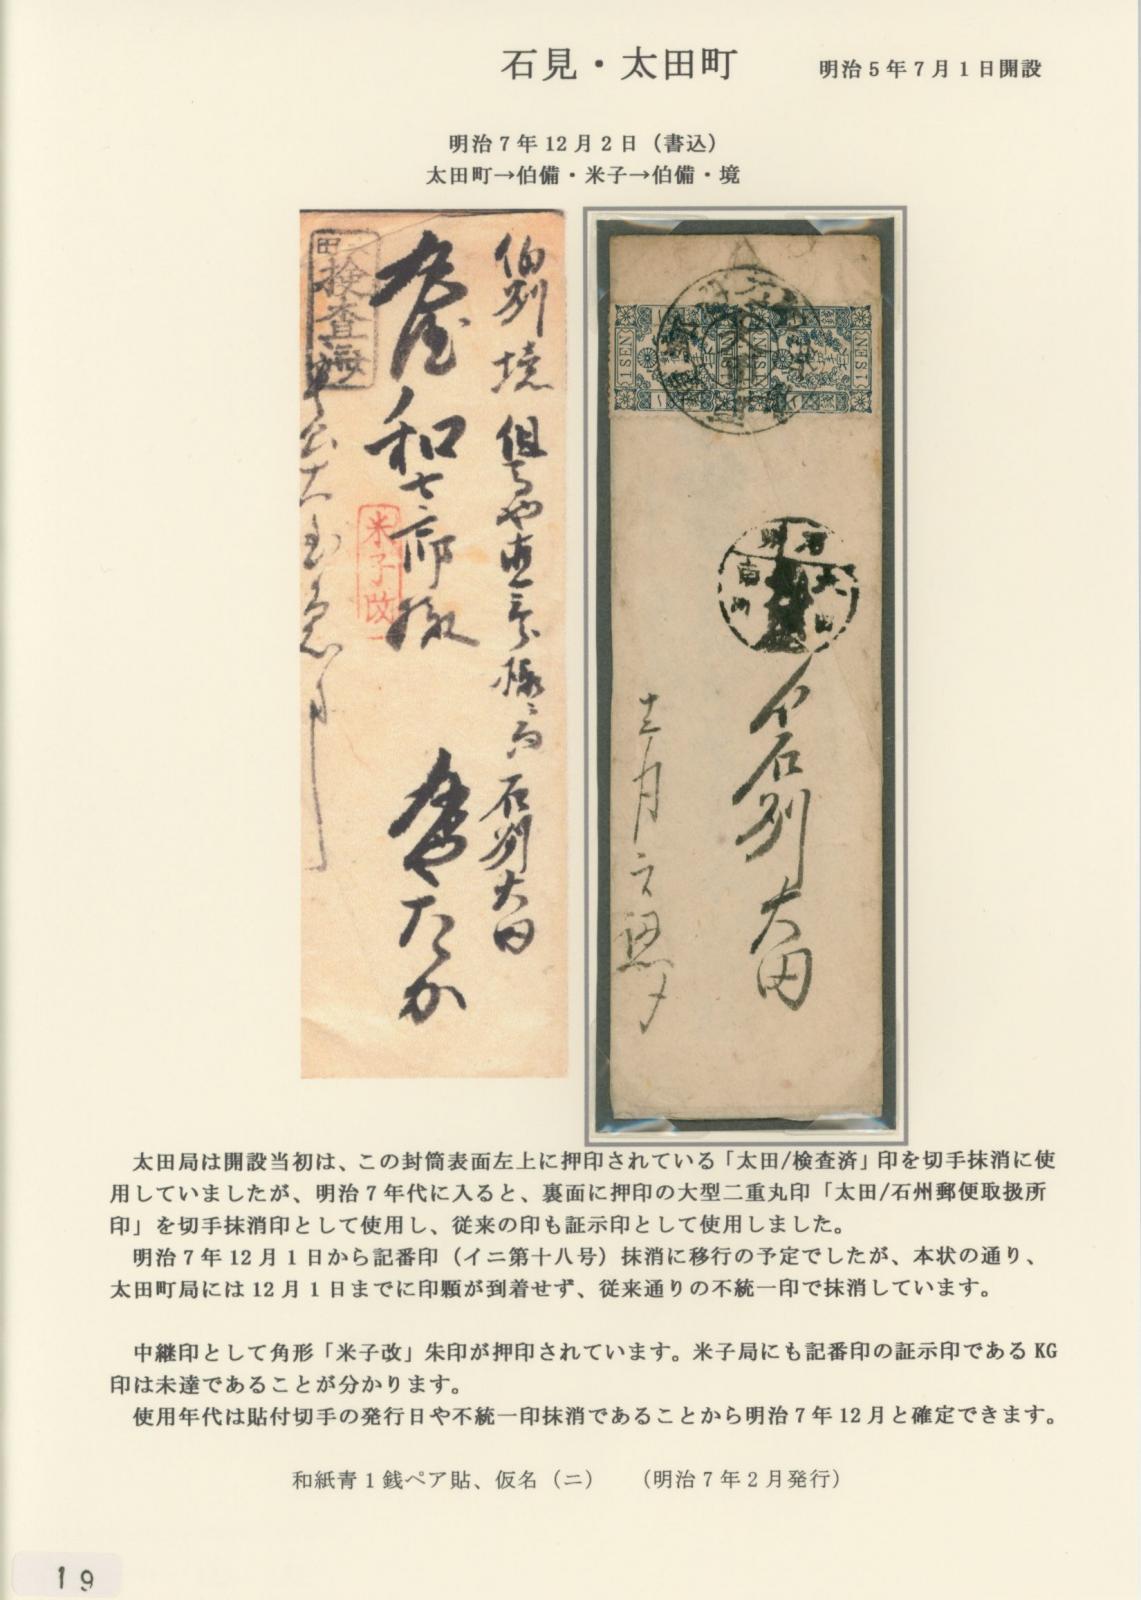 石見・太田町
明治5年7月1日開設
明治7年12月2日（書込）
太田町→伯備・米子→伯備・境
検査済
米子改
伯州境
石州大田
和七郎様
たか
1SEN
1SEN
1SEN
石州大田
十二月二日
太田局は開設当初は、この封筒表面左上に押印されている「太田/検査済」印を切手抹消に使
用していましたが、明治7年代に入ると、裏面に押印の大型二重丸印「太田/石州郵便取扱所
印」を切手抹消印として使用し、従来の印も証示印として使用しました。
明治7年12月1日から記番印（イニ第十八号）抹消に移行の予定でしたが、本状の通り、
太田町局には12月1日までに印顆が到着せず、従来通りの不統一印で抹消しています。
中継印として角形「米子改」朱印が押印されています。米子局にも記番印の証示印であるKG
印は未達であることが分かります。
使用年代は貼付切手の発行日や不統一印抹消であることから明治7年12月と確定できます。
和紙青1銭ペア貼、仮名（ニ）　（明治7年2月発行）
19